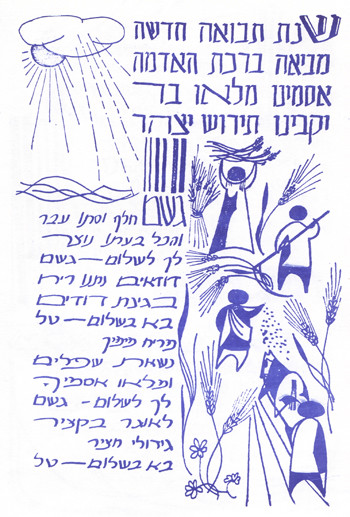 שנת תבואה חדשה
מביאה ברכת האדמה
אסמינו מלאו בר
יקבינו תירוש יצהר
גשם
חלף וסתו עבר
והכל בעתו נוצר
לך לשלום — גשם
דודאים נתנו ריח
בגינת דודים
בא בשלום — טל
פריח
נשאת עפלים
ומלאו אסמיך
לך לשלום - גשם
לאוצר בקציר
גידולי חציר
בא בשלום — טל